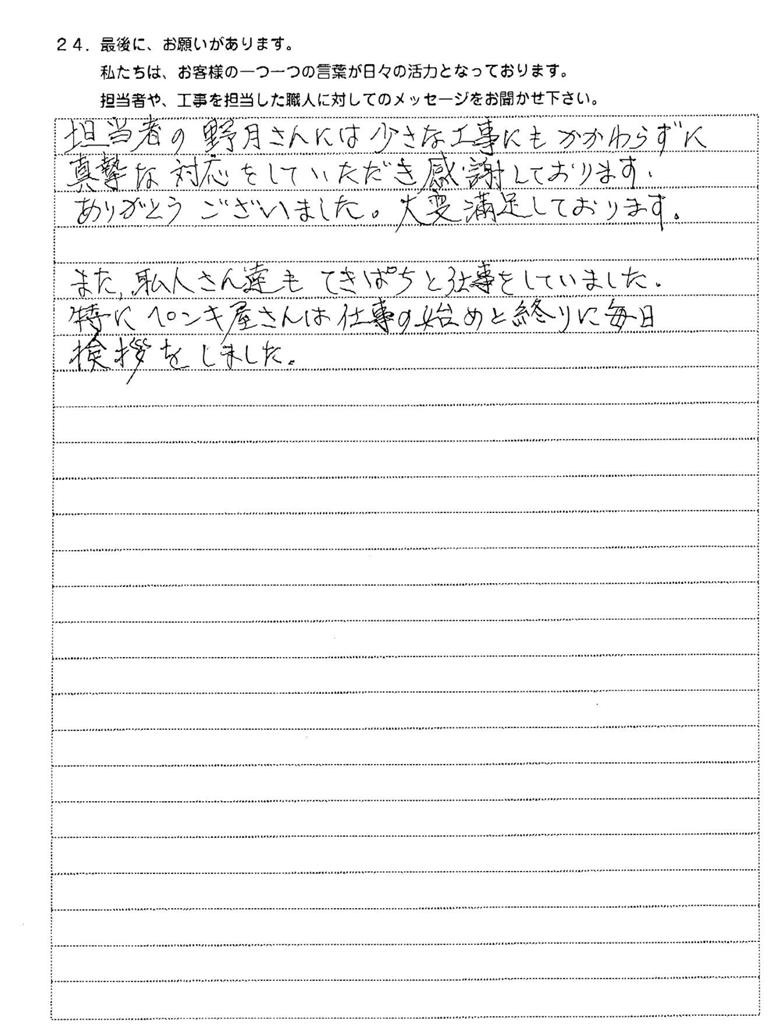 24．最後に、お願いがあります。
私たちは、お客様の一つ一つの言葉が日々の活力となっております。
担当者や、工事を担当した職人に対してのメッセージをお聞かせ下さい。
担当者の野月さんには少さな工事にもかかわらずに
真摯な対応をしていただき感謝しております.
ありがとうございました。大変満足しております。
また,職人さん達もてきぱちと仕事をしていました.
特にペンキ屋さんは仕事の始めと終りに毎日
挨拶をしました。